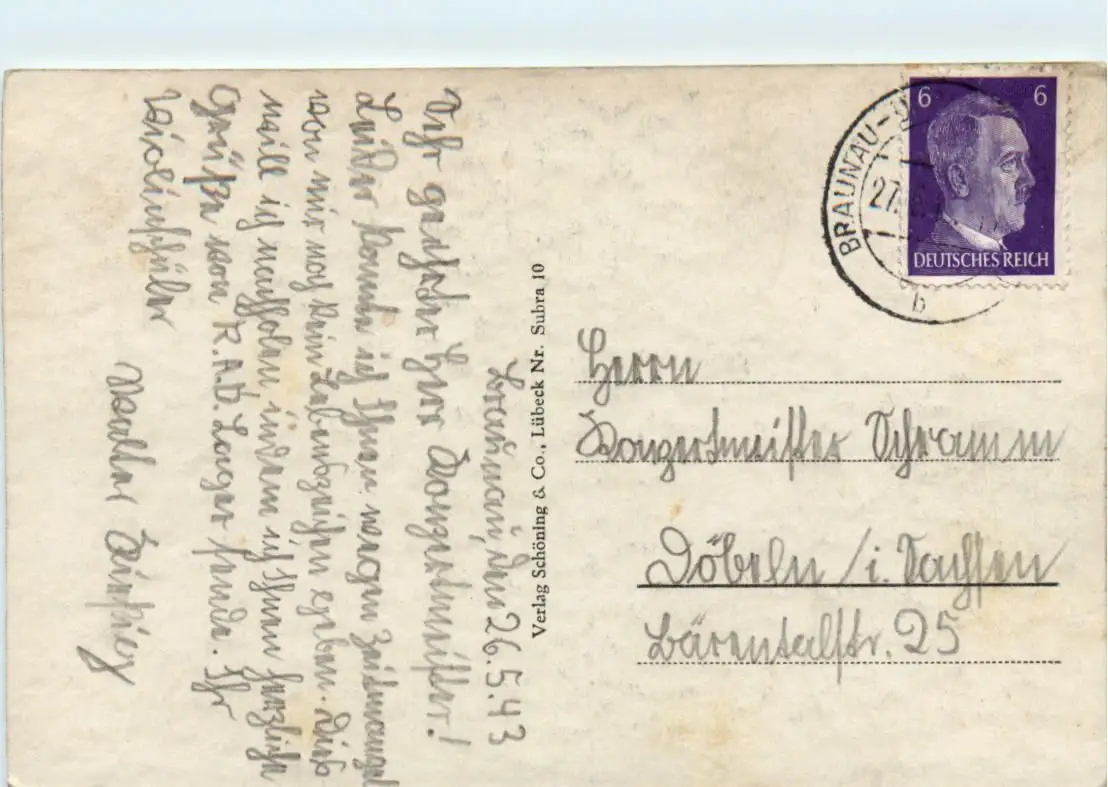 Braunau, den 26.5.43
Sehr geehrter Herr Konzertmeister!
Leider konnte ich Ihnen wegen Zeitmangel
von mir noch kein Lebenszeichen geben. Dies
will ich nachholen, indem ich Ihnen herzliche
Grüße vom R.A.D. Lager sende. Ihr
Violinschüler
Walter
Verlag Schöning & Co., Lübeck Nr. Subra 10
6 6
DEUTSCHES REICH
BRAUNAU
27
b
Herrn
Konzertmeister Schramm
Döbeln / i. Sachsen
Bärentalstr. 25